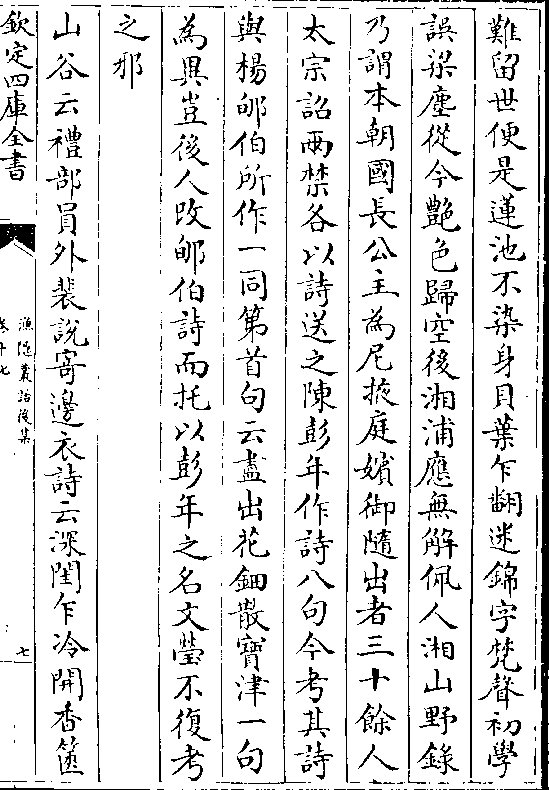 難留世便是蓮池不染身貝葉乍翻迷錦字梵聲初學
誤梁塵從今艶色歸空後湘浦應無解佩人湘山野錄
乃謂本朝國長公主為尼掖庭嬪御隨出者三十餘人
太宗詔兩禁各以詩送之陳彭年作詩八句今考其詩
與楊郇伯所作一同第首句云盡出花鈿散寶津一句
為異豈後人改郇伯詩而托以彭年之名文瑩不復考
之邪
山谷云禮部員外裴說寄邊衣詩云深閨乍冷開香篋
欽定四庫全書
漁隱叢話後集
卷十七
七